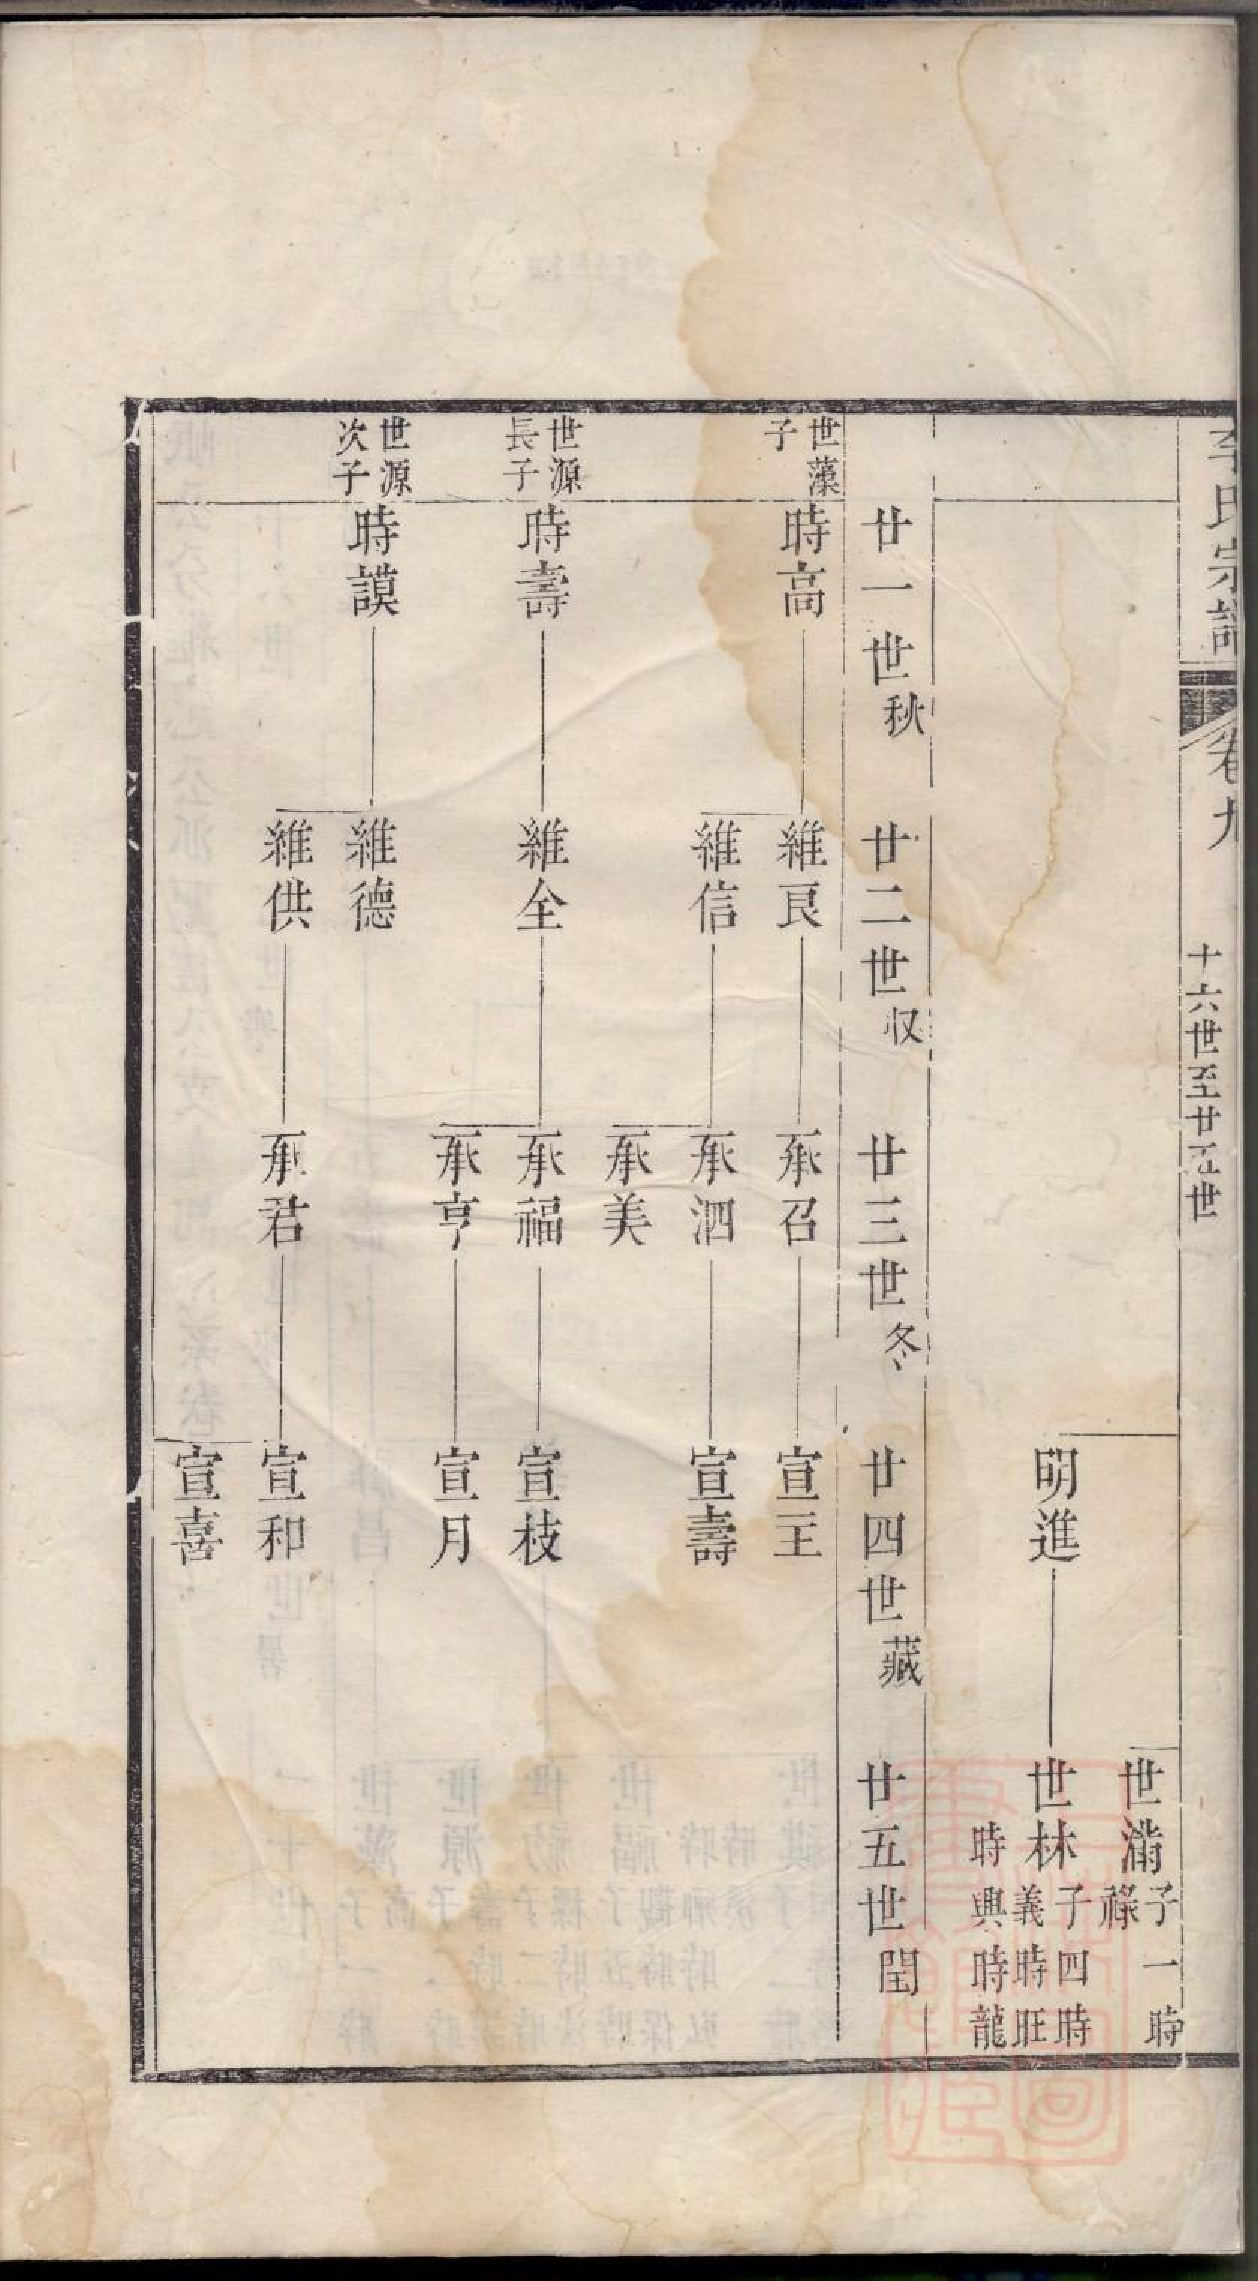 李氏宗譜
卷九
十六世至廿五世
世滿子一時
祿
明進
世林子四時
義時旺
時興時龍
廿一世秋
廿二世収
廿三世冬
廿四世藏
廿五世閏
世藻
子
時高
維良
承召
宣王
維信
承泗
宣壽
承美
世源
長子
時壽
維全
承福
宣枝
承亨
宣月
世源
次子
時謨
維德
維供
承君
宣和
宣喜